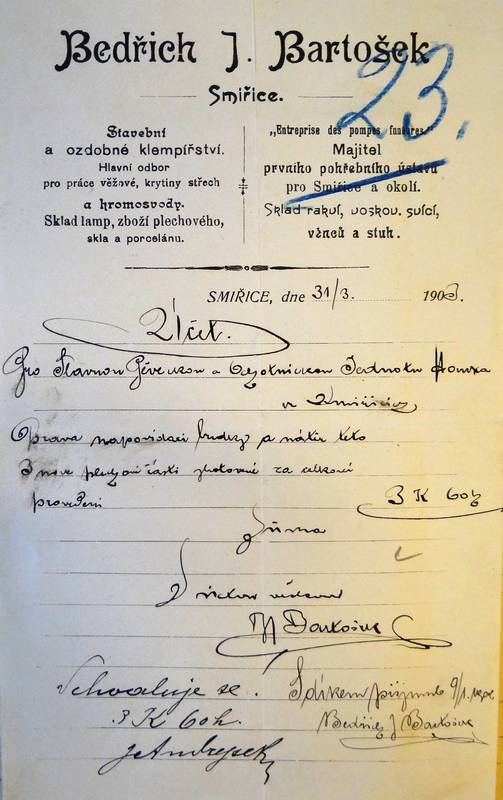 Bedřich J. Bartošek
Smiřice.
23.
Stavební
a ozdobné klempířství.
Hlavní odbor
pro práce věžové, krytiny střech
a hromosvody.
Sklad lamp, zboží plechového,
skla a porcelánu.
„Entreprise des pompes funèbres“
Majitel
prvního pohřebního ústavu
pro Smiřice a okolí.
Sklad rakví, voskov. svící,
věnců a stuh.
SMIŘICE, dne 31/3. 1903.
Účet.
Pro Slavnou a Jednotu
v Smiřicích
Oprava napovídací budky a nátěr této
3 nové části zhotovené za celkové
provedení 3 K 60 h
Suma
V úctou
BJ Bartošek
Schvaluje se.
3 K 60 h.
S díkem přijmuto 9/1.
Bedřich J Bartošek